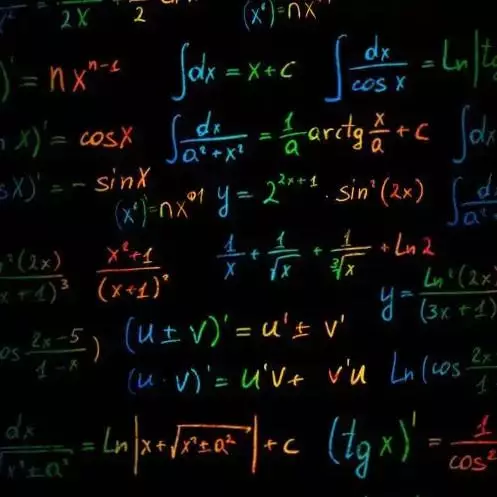 2x 2 (x⁶)'=nx
)' = nxⁿ⁻¹ ∫dx = x+c ∫ dx/cos x = Ln|tg
n x)' = cosx ∫ dx/(a²+x²) = 1/a arctg x/a + c ∫ dx
sx)' = - sinx (x⁶)'=nx y = 2^(2x+1) · sin²(2x) ∫ d/a²
²(2x)/(x+1)³ (x²+1)/(x+1)² 1/x + 1/√x + 1/∛x + Ln 2
y = Ln²(2x)/(3x+1)
os (2x-5)/(1-x) ) (u ± v)' = u' ± v'
(u · v)' = u'v + v'u Ln(cos 2x/1
dx/√(x²±a²) = Ln|x+√(x²±a²)|+c (tg x)' = 1/cos²